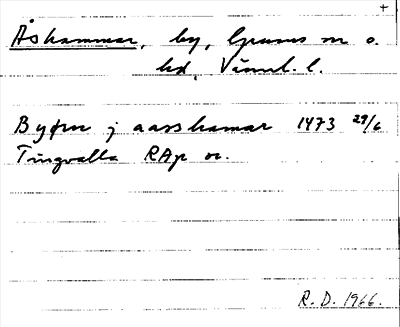 +
Åshammar, by, Grums sn o.
hd, Värml. l.
Byørn j aasshamar 1473 29/6
Tingvalla RAp or.
R. D. 1966.